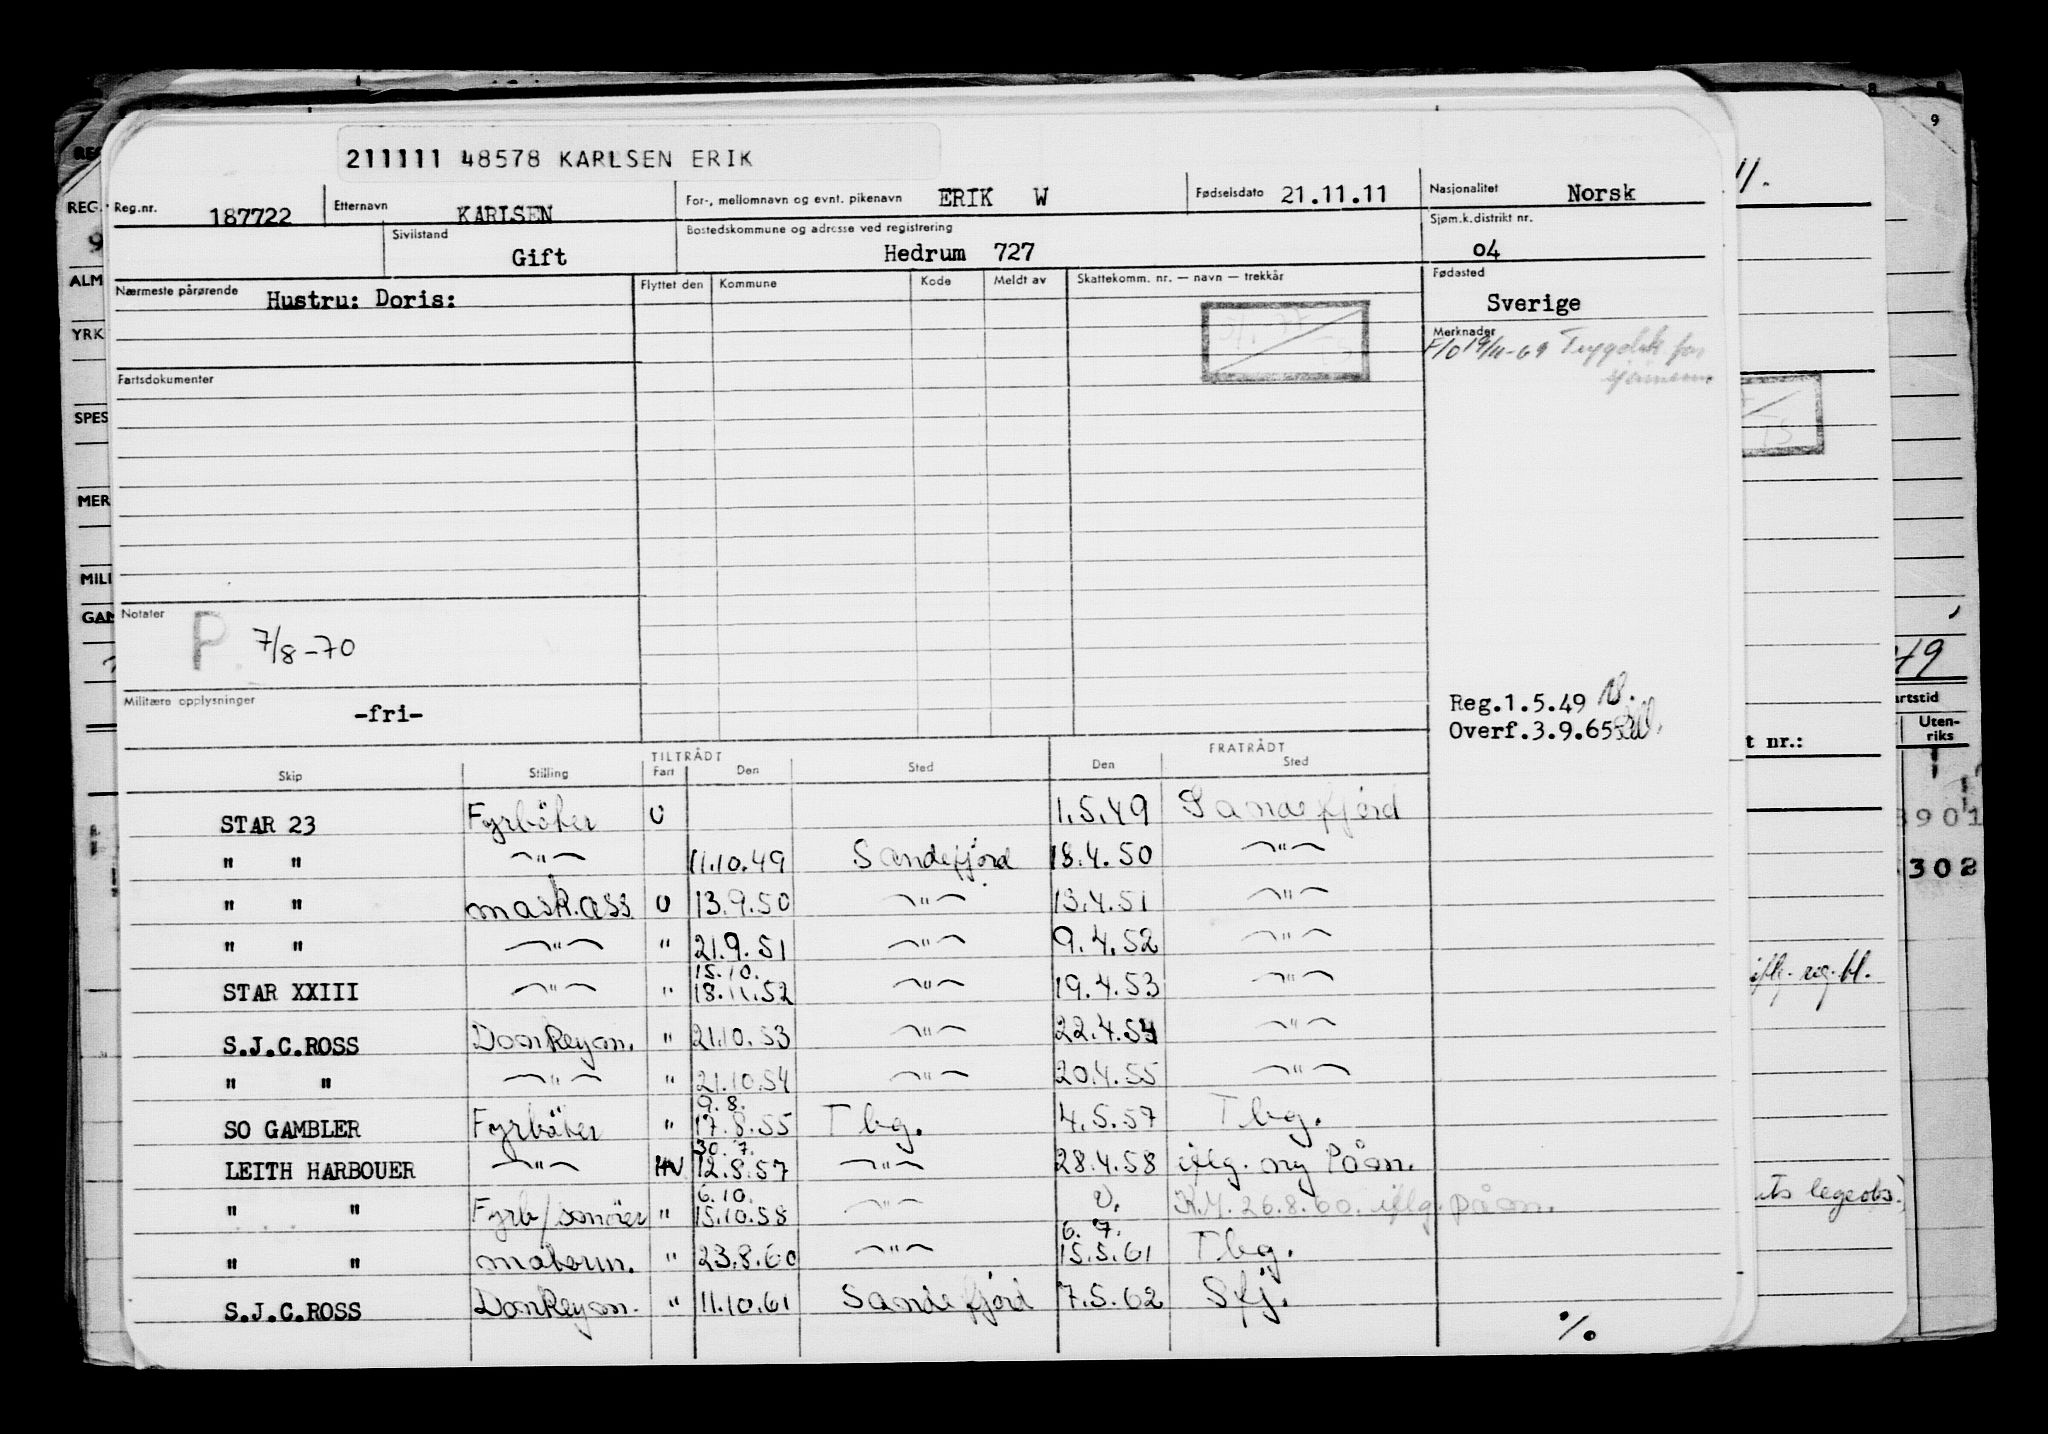 211111 48578 KARLSEN ERIK
Reg.nr. 187722 Etternavn KARLSEN For-, mellomnavn og evnt. pikenavn ERIK W Fødselsdato 21.11.11 Nasjonalitet Norsk
Sivilstand Gift Bostedskommune og adresse ved registrering Hedrum 727 Sjøm.k.distrikt nr. 04
Nærmeste pårørende Hustru: Doris: Flyttet den Kommune Kode Meldt av Skattekomm. nr. — navn — trekkår Fødested Sverige
Merknader
F/O 19/11-69 Trygdek. for
Fartsdokumenter
Notater P 7/8-70
Militære opplysninger -fri-
Reg.1.5.49
Overf.3.9.65
TILTRÅDT FRATRÅDT
Skip Stilling Fart Den Sted Den Sted
STAR 23 Fyrböter U 1.5.49 Sandefjord
" " —"— 11.10.49 Sandefjord 18.4.50 —"—
" " mask.ass U 13.9.50 —"— 13.4.51 —"—
" " —"— " 21.9.51 —"— 9.4.52 —"—
15.10.
STAR XXIII —"— " 18.11.52 —"— 19.4.53 —"—
S.J.C.ROSS Donkeym. " 21.10.53 —"— 22.4.54 —"—
" " —"— " 21.10.54 —"— 20.4.55 —"—
9.8.
SO GAMBLER Fyrböter " 17.8.55 Tbg. 4.5.57 Tbg.
30.7.
LEITH HARBOUER —"— HV 12.8.57 —"— 28.4.58 iflg. ny Påm.
6.10.
" " Fyrb/smører " 15.10.58 —"— U. K.M. 26.8.60. iflg. påm.
6.7.
" " motorm. " 23.8.60 —"— 15.5.61 Tbg.
S.J.C.ROSS Donkeym. " 11.10.61 Sandefjord 7.5.62 Sfj.
%
REG.
ALM
YRK
SPES
MER
MILI
GAN
9
11.
49
artstid
Uten-
riks
t nr.:
901
302
iflg. reg.bl.
legeobs.)